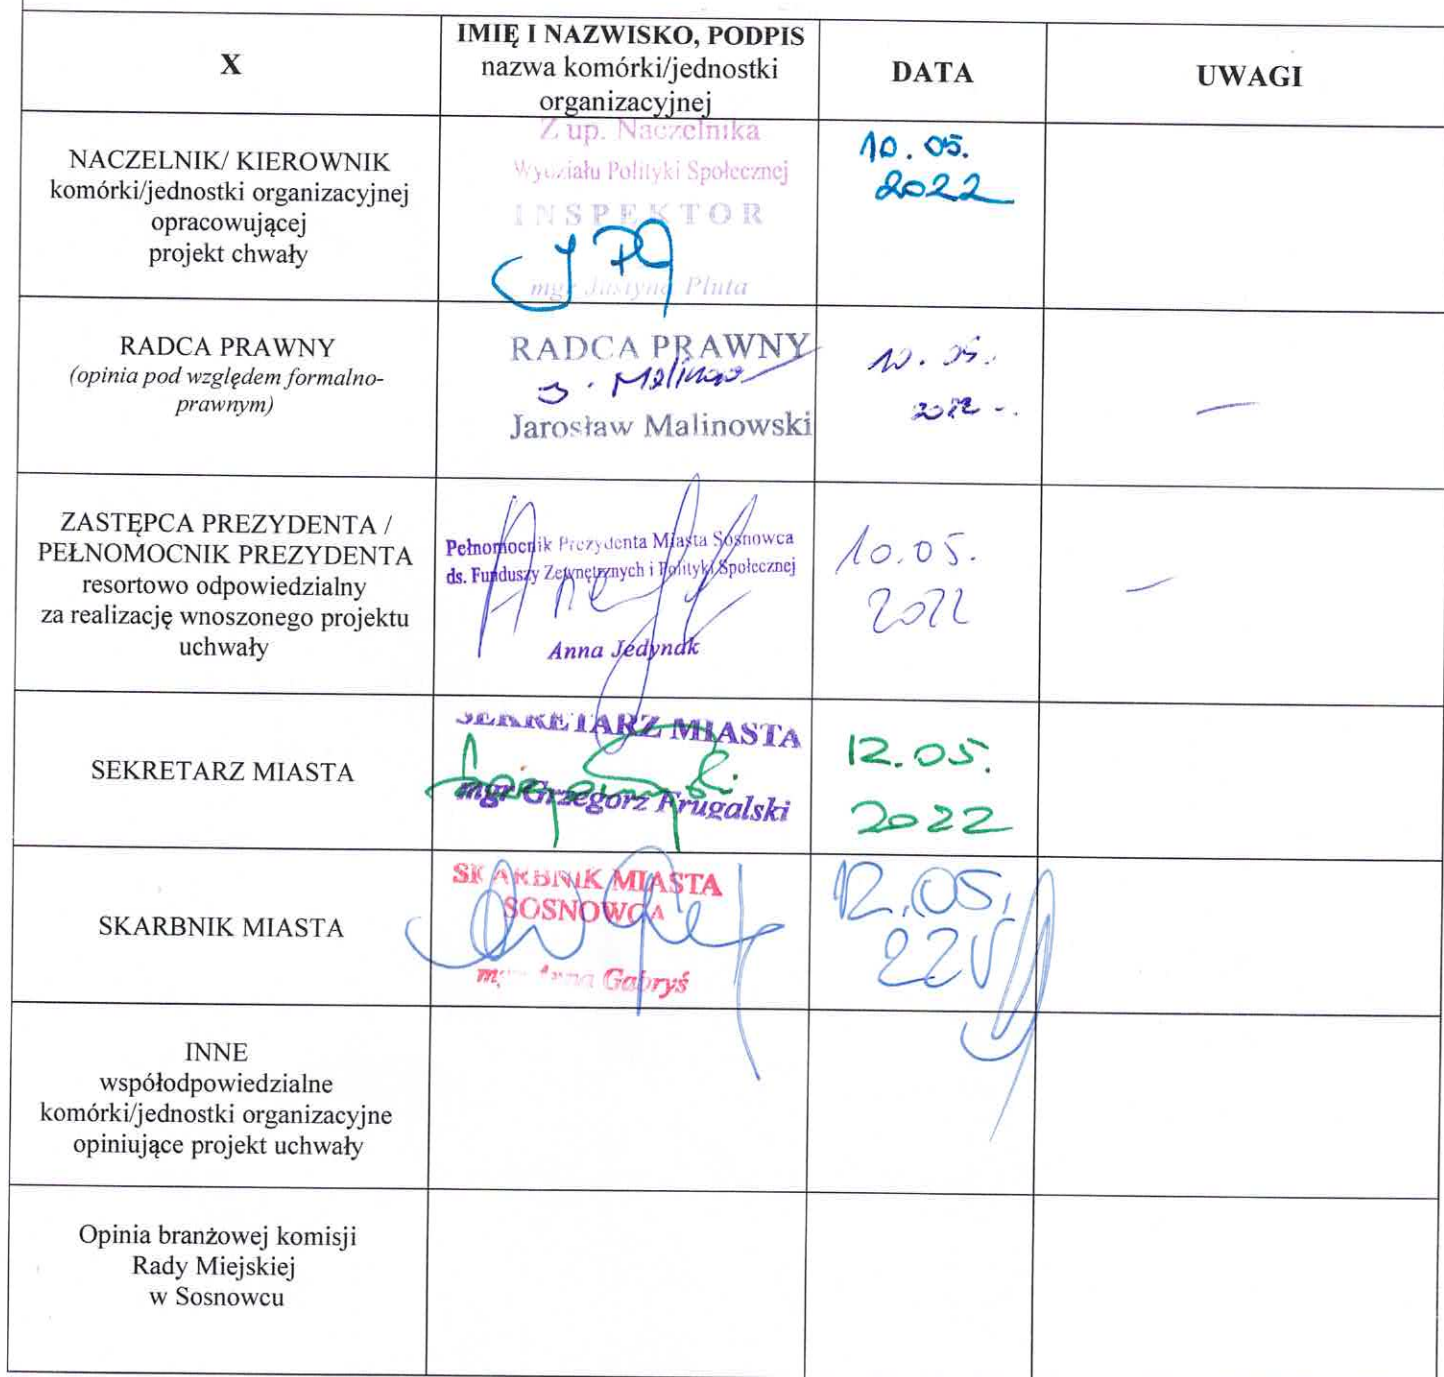 X
IMIĘ I NAZWISKO, PODPIS
nazwa komórki/jednostki
organizacyjnej
DATA
UWAGI
NACZELNIK/ KIEROWNIK
komórki/jednostki organizacyjnej
opracowującej
projekt chwały
Z up. Naczelnika
Wydziału Polityki Społecznej
INSPEKTOR
mgr Justyna Pluta
10.05.
2022
RADCA PRAWNY
(opinia pod względem formalno-
prawnym)
RADCA PRAWNY
Jarosław Malinowski
10.05.
2022
ZASTĘPCA PREZYDENTA /
PEŁNOMOCNIK PREZYDENTA
resortowo odpowiedzialny
za realizację wnoszonego projektu
uchwały
Pełnomocnik Prezydenta Miasta Sosnowca
ds. Funduszy Zewnętrznych i Polityki Społecznej
Anna Jedynak
10.05.
2022
SEKRETARZ MIASTA
SEKRETARZ MIASTA
mgr Grzegorz Frugalski
12.05.
2022
SKARBNIK MIASTA
SKARBNIK MIASTA
SOSNOWCA
mgr Anna Gabryś
12.05.
22
INNE
współodpowiedzialne
komórki/jednostki organizacyjne
opiniujące projekt uchwały
Opinia branżowej komisji
Rady Miejskiej
w Sosnowcu